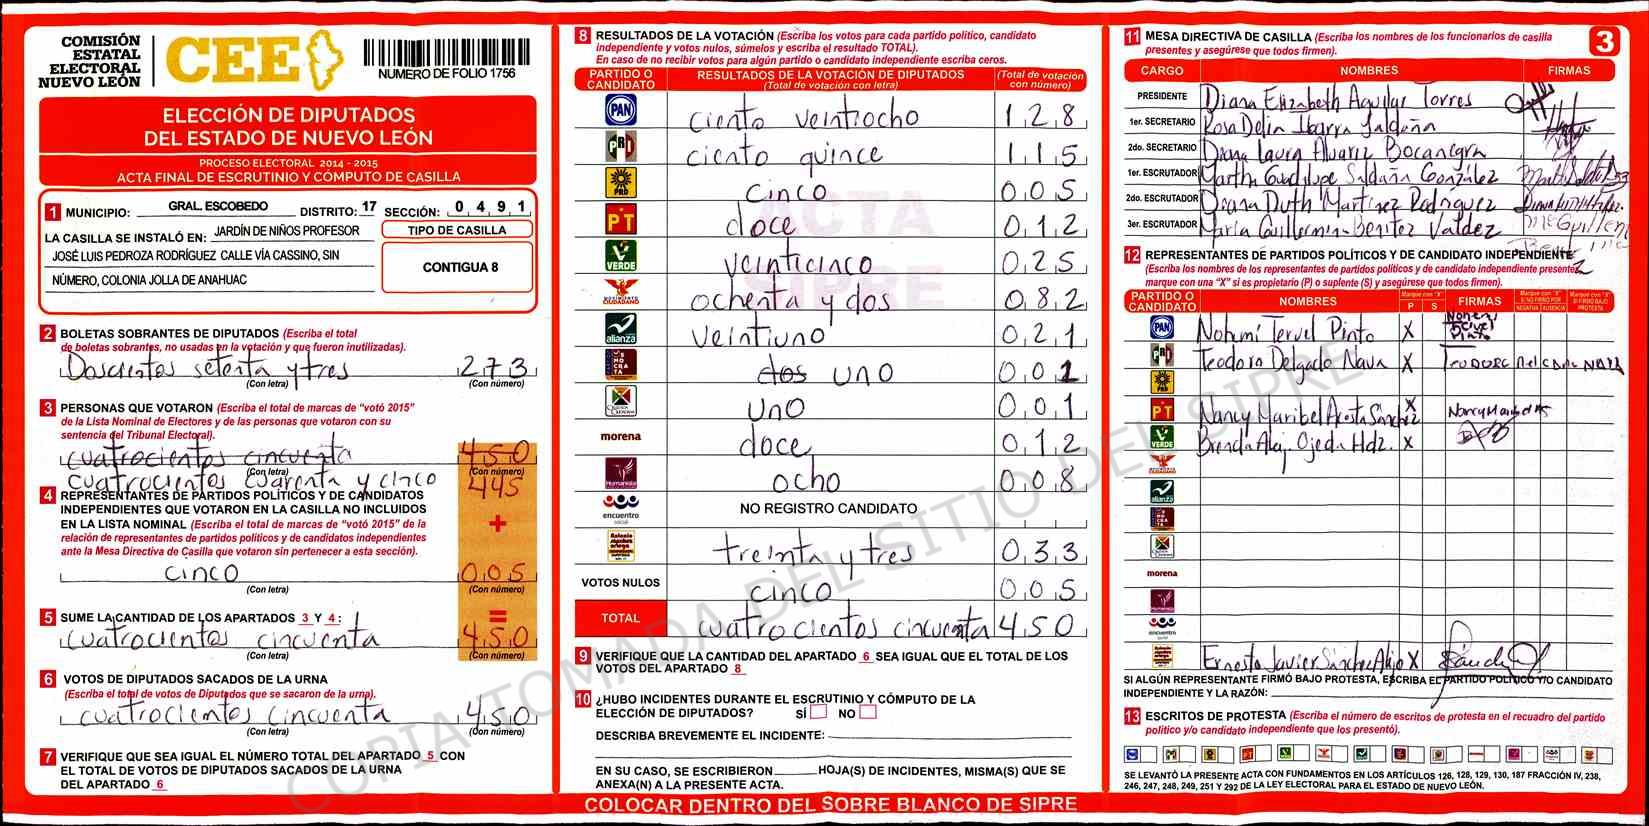 COMISIÓN
ESTATAL
ELECTORAL
NUEVO LEÓN
CEE
NUMERO DE FOLIO 1756
ELECCIÓN DE DIPUTADOS
DEL ESTADO DE NUEVO LEÓN
PROCESO ELECTORAL 2014 - 2015
ACTA FINAL DE ESCRUTINIO Y CÓMPUTO DE CASILLA
1 MUNICIPIO: GRAL. ESCOBEDO DISTRITO: 17 SECCIÓN: 0 4 9 1
LA CASILLA SE INSTALÓ EN: JARDÍN DE NIÑOS PROFESOR
JOSÉ LUIS PEDROZA RODRÍGUEZ CALLE VÍA CASSINO, SIN
NÚMERO, COLONIA JOLLA DE ANAHUAC
TIPO DE CASILLA
CONTIGUA 8
2 BOLETAS SOBRANTES DE DIPUTADOS (Escriba el total
de boletas sobrantes, no usadas en la votación y que fueron inutilizadas).
Doscientos setenta y tres 273
(Con letra) (Con número)
3 PERSONAS QUE VOTARON (Escriba el total de marcas de “votó 2015”
de la Lista Nominal de Electores y de las personas que votaron con su
sentencia del Tribunal Electoral).
cuatrocientos cincuenta 450
(Con letra) (Con número)
cuatrocientos cuarenta y cinco 445
4 REPRESENTANTES DE PARTIDOS POLÍTICOS Y DE CANDIDATOS
INDEPENDIENTES QUE VOTARON EN LA CASILLA NO INCLUIDOS
EN LA LISTA NOMINAL (Escriba el total de marcas de “votó 2015” de la
relación de representantes de partidos políticos y de candidatos independientes
ante la Mesa Directiva de Casilla que votaron sin pertenecer a esta sección).
+
cinco 005
(Con letra) (Con número)
5 SUME LA CANTIDAD DE LOS APARTADOS 3 Y 4: =
cuatrocientos cincuenta 450
(Con letra) (Con número)
6 VOTOS DE DIPUTADOS SACADOS DE LA URNA
(Escriba el total de votos de Diputados que se sacaron de la urna).
cuatrocientos cincuenta 450
(Con letra) (Con número)
7 VERIFIQUE QUE SEA IGUAL EL NÚMERO TOTAL DEL APARTADO 5 CON
EL TOTAL DE VOTOS DE DIPUTADOS SACADOS DE LA URNA
DEL APARTADO 6
8 RESULTADOS DE LA VOTACIÓN (Escriba los votos para cada partido político, candidato
independiente y votos nulos, súmelos y escriba el resultado TOTAL).
En caso de no recibir votos para algún partido o candidato independiente escriba ceros.
PARTIDO O CANDIDATO RESULTADOS DE LA VOTACIÓN DE DIPUTADOS (Total de votación con letra) (Total de votación con número)
PAN ciento veintiocho 128
PRD ciento quince 115
PRD cinco 005
PT doce 012
VERDE veinticinco 025
MOVIMIENTO CIUDADANO ochenta y dos 082
alianza veintiuno 021
DEMÓCRATA dos uno 001
uno 001
morena doce 012
Humanista ocho 008
encuentro social NO REGISTRO CANDIDATO
treinta y tres 033
VOTOS NULOS cinco 005
TOTAL cuatrocientos cincuenta 450
ACTA
SIPRE
9 VERIFIQUE QUE LA CANTIDAD DEL APARTADO 6 SEA IGUAL QUE EL TOTAL DE LOS
VOTOS DEL APARTADO 8
10 ¿HUBO INCIDENTES DURANTE EL ESCRUTINIO Y CÓMPUTO DE LA
ELECCIÓN DE DIPUTADOS? SÍ NO
DESCRIBA BREVEMENTE EL INCIDENTE:
EN SU CASO, SE ESCRIBIERON HOJA(S) DE INCIDENTES, MISMA(S) QUE SE
ANEXA(N) A LA PRESENTE ACTA.
COLOCAR DENTRO DEL SOBRE BLANCO DE SIPRE
11 MESA DIRECTIVA DE CASILLA (Escriba los nombres de los funcionarios de casilla
presentes y asegúrese que todos firmen).
3
CARGO NOMBRES FIRMAS
PRESIDENTE Diana Elizabeth Aguilar Torres
1er. SECRETARIO Rosa Delia Ibarra Saldaña
2do. SECRETARIO Diana Laura Alvarez Bocanegra
1er. ESCRUTADOR Martha Guadalupe Saldaña González
2do. ESCRUTADOR Diana Duth Martinez Rodriguez
3er. ESCRUTADOR Maria Guillermina Benitez Valdez
12 REPRESENTANTES DE PARTIDOS POLÍTICOS Y DE CANDIDATO INDEPENDIENTE
(Escriba los nombres de los representantes de partidos políticos y de candidato independiente presentes,
marque con una “X” si es propietario (P) o suplente (S) y asegúrese que todos firmen).
PARTIDO O CANDIDATO NOMBRES Marque con “X” P S FIRMAS Marque con “X” SI NO FIRMÓ POR NEGATIVA AUSENCIA Marque con “X” SI FIRMÓ BAJO PROTESTA
PAN Nohmí Teruel Pinto X
PRD Teodora Delgado Nava X
PRD
PT Nancy Maribel Acosta Sánchez X
VERDE Brenda Alej. Ojeda Hdz. X
alianza
morena
encuentro
Ernesto Javier Sánchez Alejo X
SI ALGÚN REPRESENTANTE FIRMÓ BAJO PROTESTA, ESCRIBA EL PARTIDO POLÍTICO Y/O CANDIDATO
INDEPENDIENTE Y LA RAZÓN:
13 ESCRITOS DE PROTESTA (Escriba el número de escritos de protesta en el recuadro del partido
político y/o candidato independiente que los presentó).
SE LEVANTÓ LA PRESENTE ACTA CON FUNDAMENTOS EN LOS ARTÍCULOS 126, 128, 129, 130, 187 FRACCIÓN IV, 238,
246, 247, 248, 249, 251 Y 292 DE LA LEY ELECTORAL PARA EL ESTADO DE NUEVO LEÓN.
COPIA TOMADA DEL SITIO DEL SIPRE